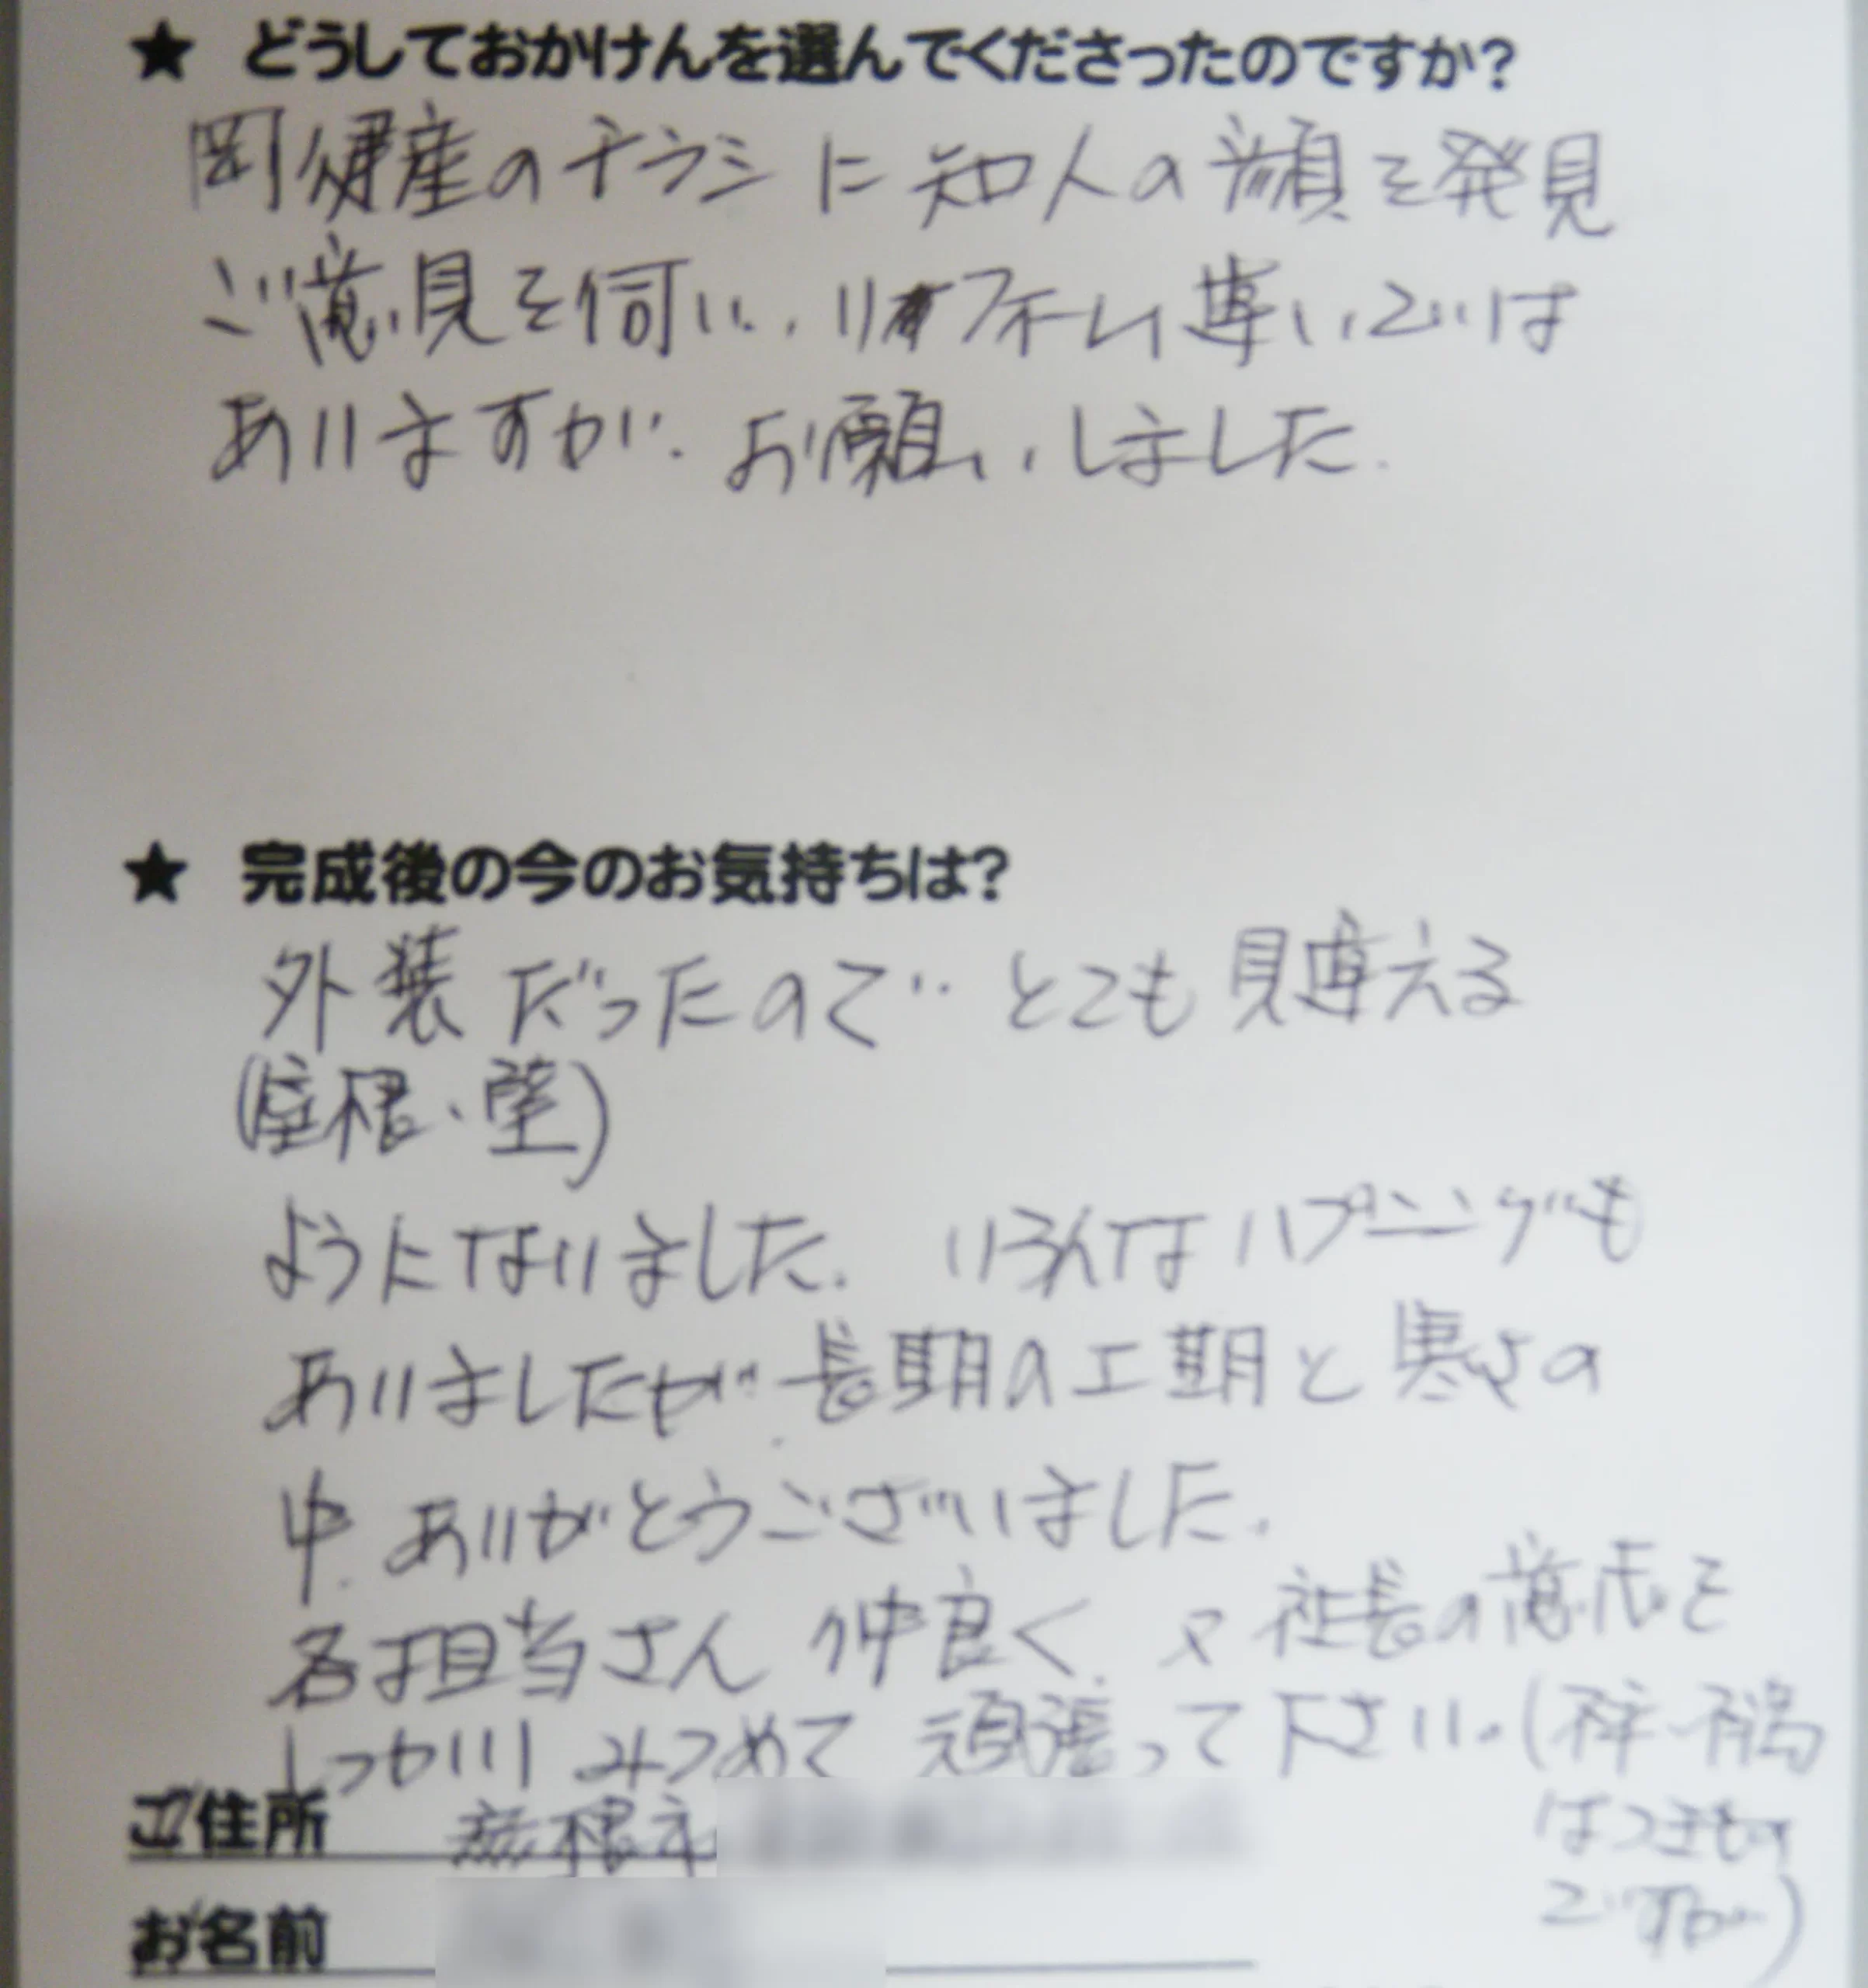 ★ どうしておかけんを選んでくださったのですか?
岡健産のチラシに知人の顔を発見
ご意見を伺い、リフォーム違いでは
ありますが、お願いしました.
★ 完成後の今のお気持ちは?
外装だったので、とても見違える
(屋根・壁)
ようになりました. いろんなハプニングも
ありましたが、長期の工期と寒さの
中、ありがとうございました.
各担当さん 仲良く、又社長の意志を
しっかり みつめて 頑張って下さい。(
はつきもの
ですね)
ご住所 彦根市
お名前